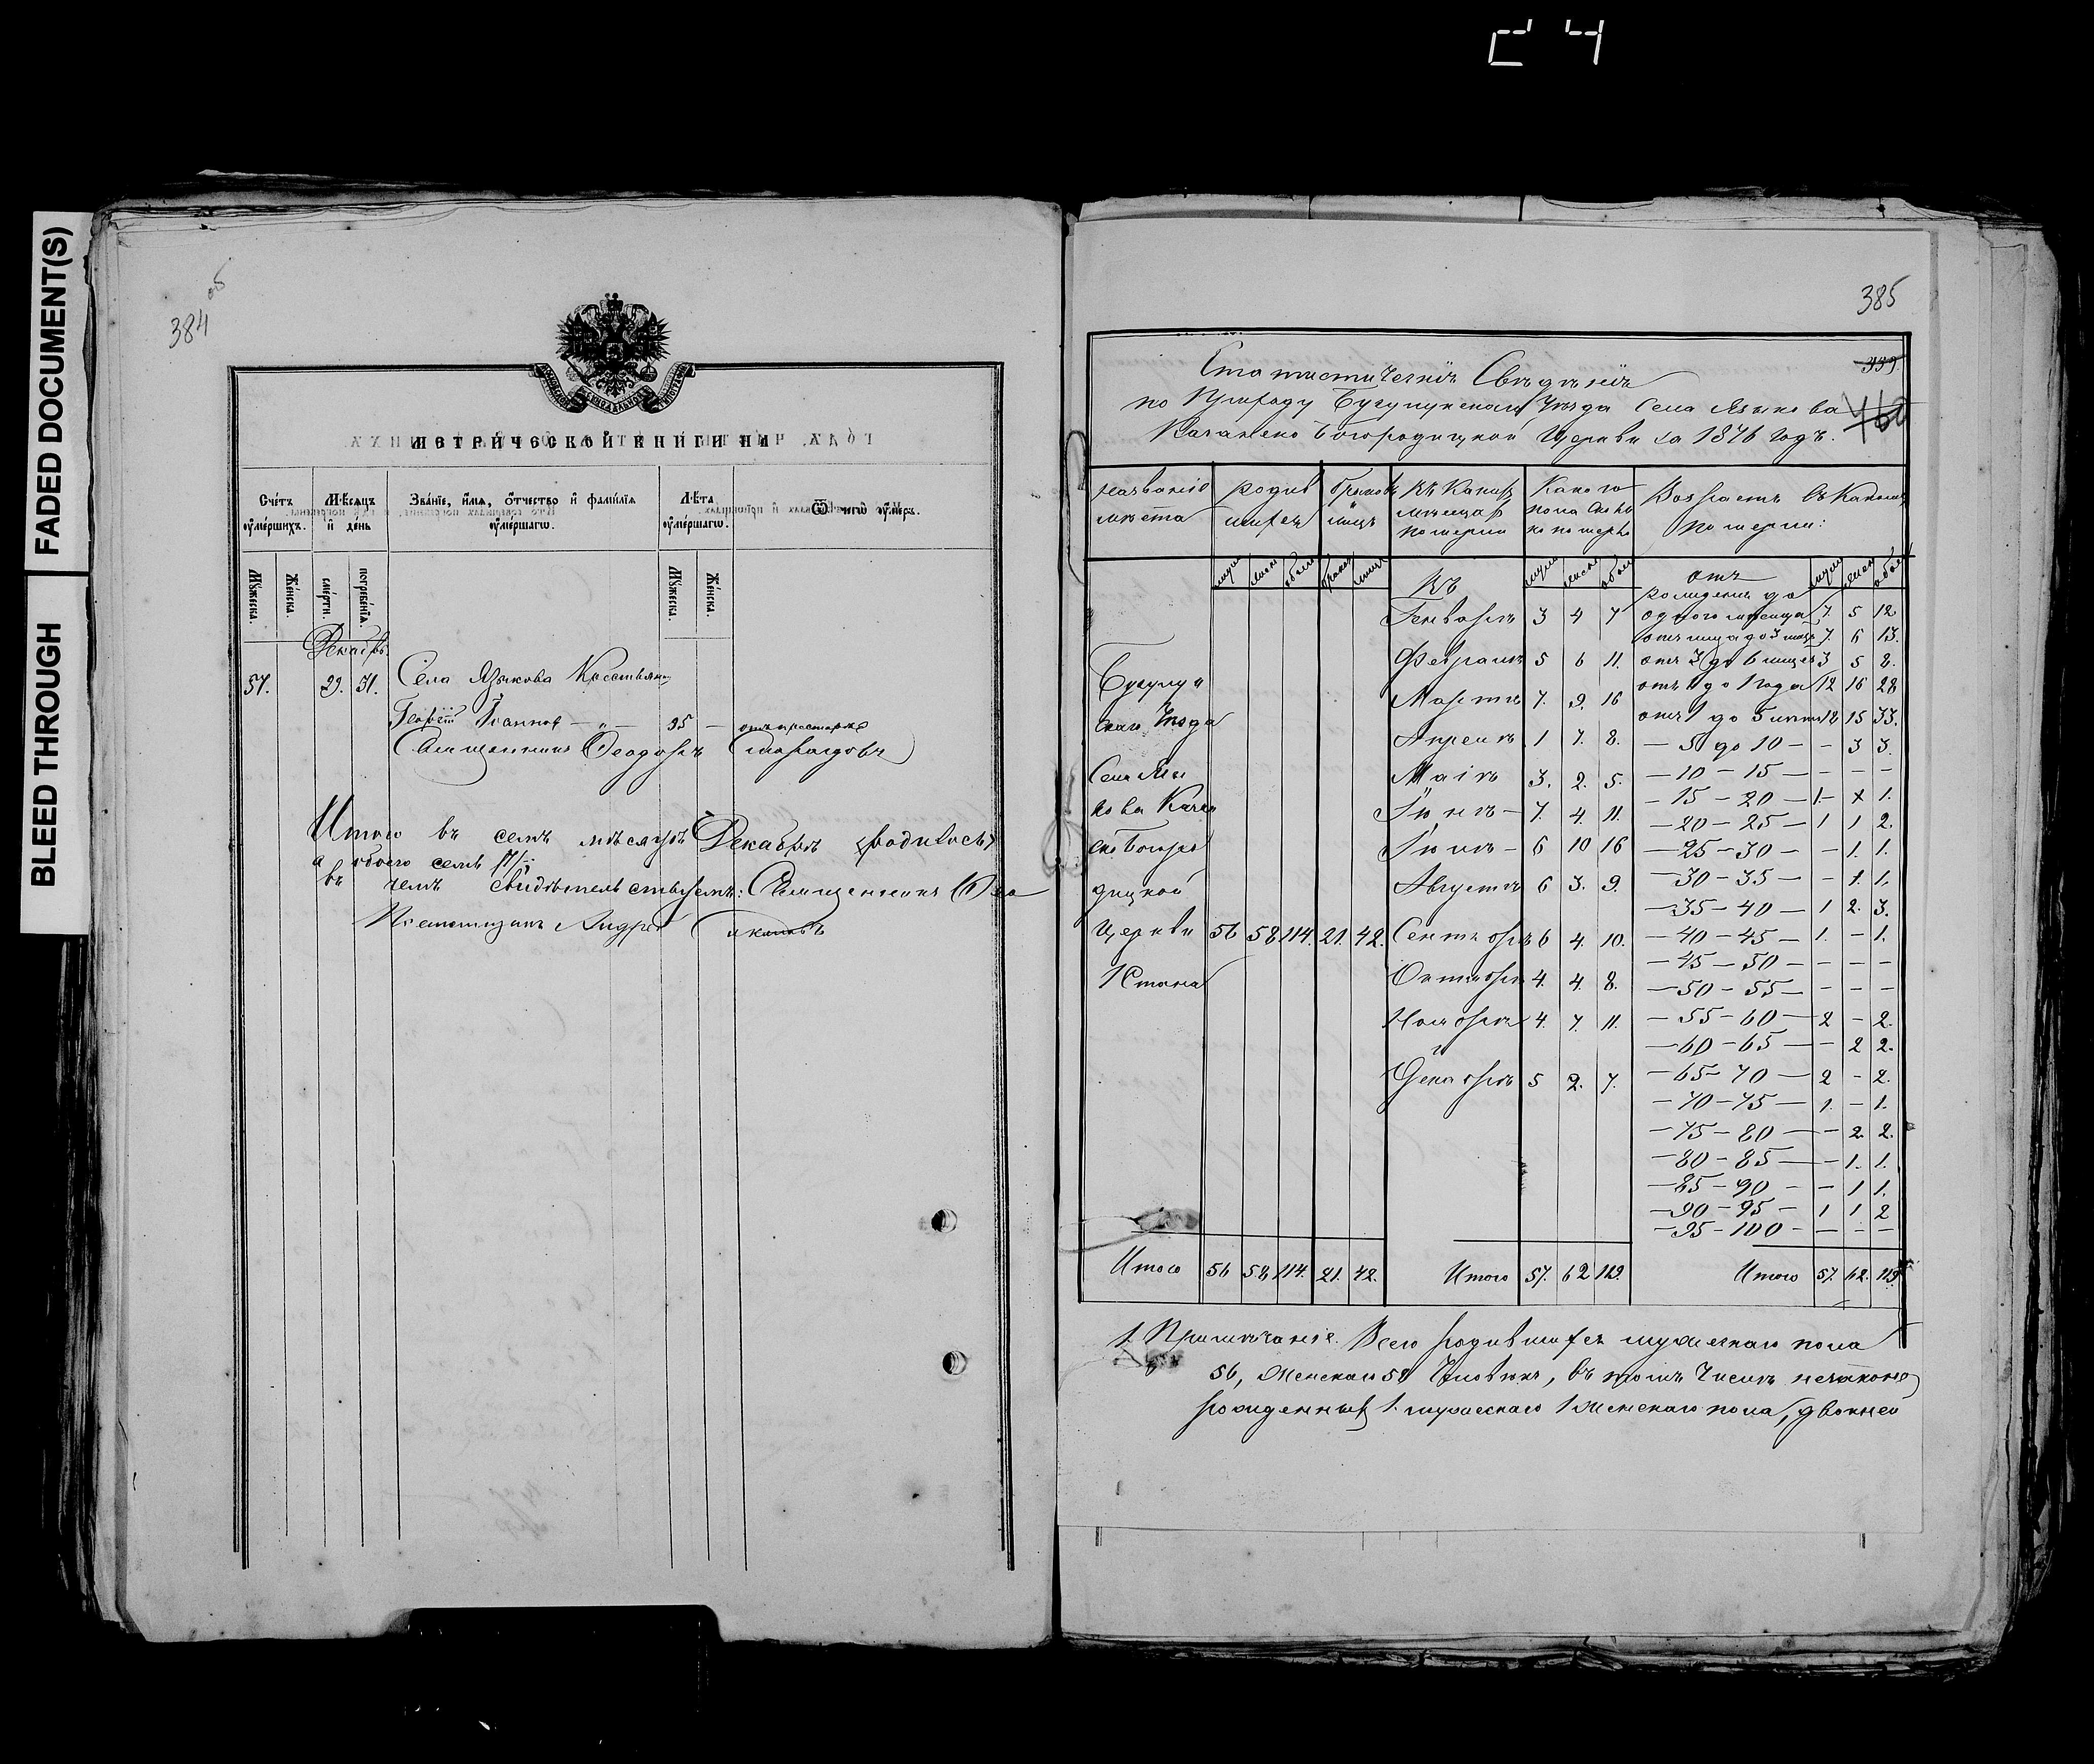 FADED DOCUMENT(S)
BLEED THROUGH
384 об
МЕТРИЧЕСКОЙ КНИГИ НА
Счетъ оумершихъ.
Мѣсяцъ и день
Званіе, имя, отчество и фамилія оумершагѡ.
Лѣта оумершагѡ.
Ѿ чегѡ оумеръ.
Мужеска.
Женска.
смерти.
погребенія.
Мужеска.
Женска.
Декабрь.
57. 29. 31. Села Языкова
Іоанновъ — „ — 95 — отъ старости
Священникъ Ѳеодоръ
Итого въ семъ мѣсяцѣ Декабрѣ
а обоего семь /7/
въ чемъ свидѣтельствуемъ: Священникъ
Псаломщикъ Андрей
385
339
Статистическія Свѣдѣнія
по Приходу Бугульминскаго Уѣзда Села Языкова
Казанско Богородицкой Церкви за 1876 годъ.
названіе мѣста
родившихся
браковъ лицъ
Въ какихъ мѣсяцахъ померли
Какого пола сколько померло
Возрастъ въ какомъ померли:
Въ
Генварѣ 3 4 7
Февралѣ 5 6 11.
Мартѣ 7. 9. 16
Апрелѣ 1 7. 8.
Маіѣ 3. 2. 5.
Іюнѣ — 7. 4. 11.
Іюлѣ — 6 10 16
Августѣ 6 3. 9.
Церкви 56 58 114. 21. 42. Сентябрѣ 6 4. 10.
Октябрѣ 4. 4. 8.
Ноябрѣ 4. 7. 11.
Декабрѣ 5 2. 7.
отъ
рожденія до
одного месяца 7. 5 12
отъ мца до 3 мцв 7. 6 13.
отъ 3 до 6 мцевъ 3 5 8.
отъ 6 до 1 года 12 16 28
отъ 1 до 5 летъ 18 15 33.
— 5 до 10 — - 3 3.
— 10 — 15 — - - -
— 15 — 20 — 1. - 1.
— 20 — 25 — 1 1 2.
— 25 — 30 — - 1. 1.
— 30 — 35 — - 1. 1.
— 35 — 40 — 1 2. 3.
— 40 — 45 — 1. - 1.
— 45 — 50 — - - -
— 50 — 55 — - - -
— 55 — 60 — 2 - 2.
— 60 — 65 — - 2 2.
— 65 — 70 — 2 - 2.
— 70 — 75 — 1. - 1.
— 75 — 80 — - 2. 2.
— 80 — 85 — - 1. 1.
— 85 — 90 — - 1 1.
— 90 — 95 — 1 1 2
— 95 — 100 — - - -
Итого 56 58 114. 21. 42. Итого 57. 62 119. Итого 57. 62. 119.
1. Примѣчаніе. Всего родившихся мужескаго пола
56, женскаго 58 Человѣкъ, въ томъ числѣ незаконно
рожденныхъ 1. мужескаго 1 женскаго пола, двойнею